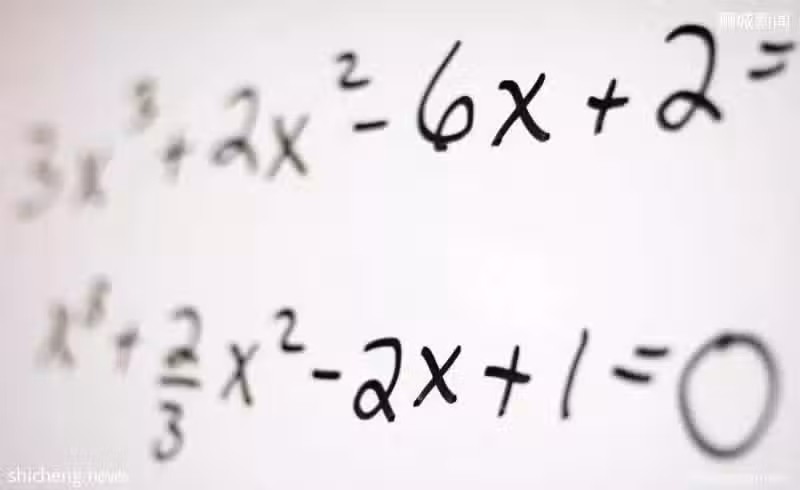 聊城新闻
3x³ + 2x² - 6x + 2 =
x³ + 2/3 x² - 2x + 1 = 0
shicheng.news